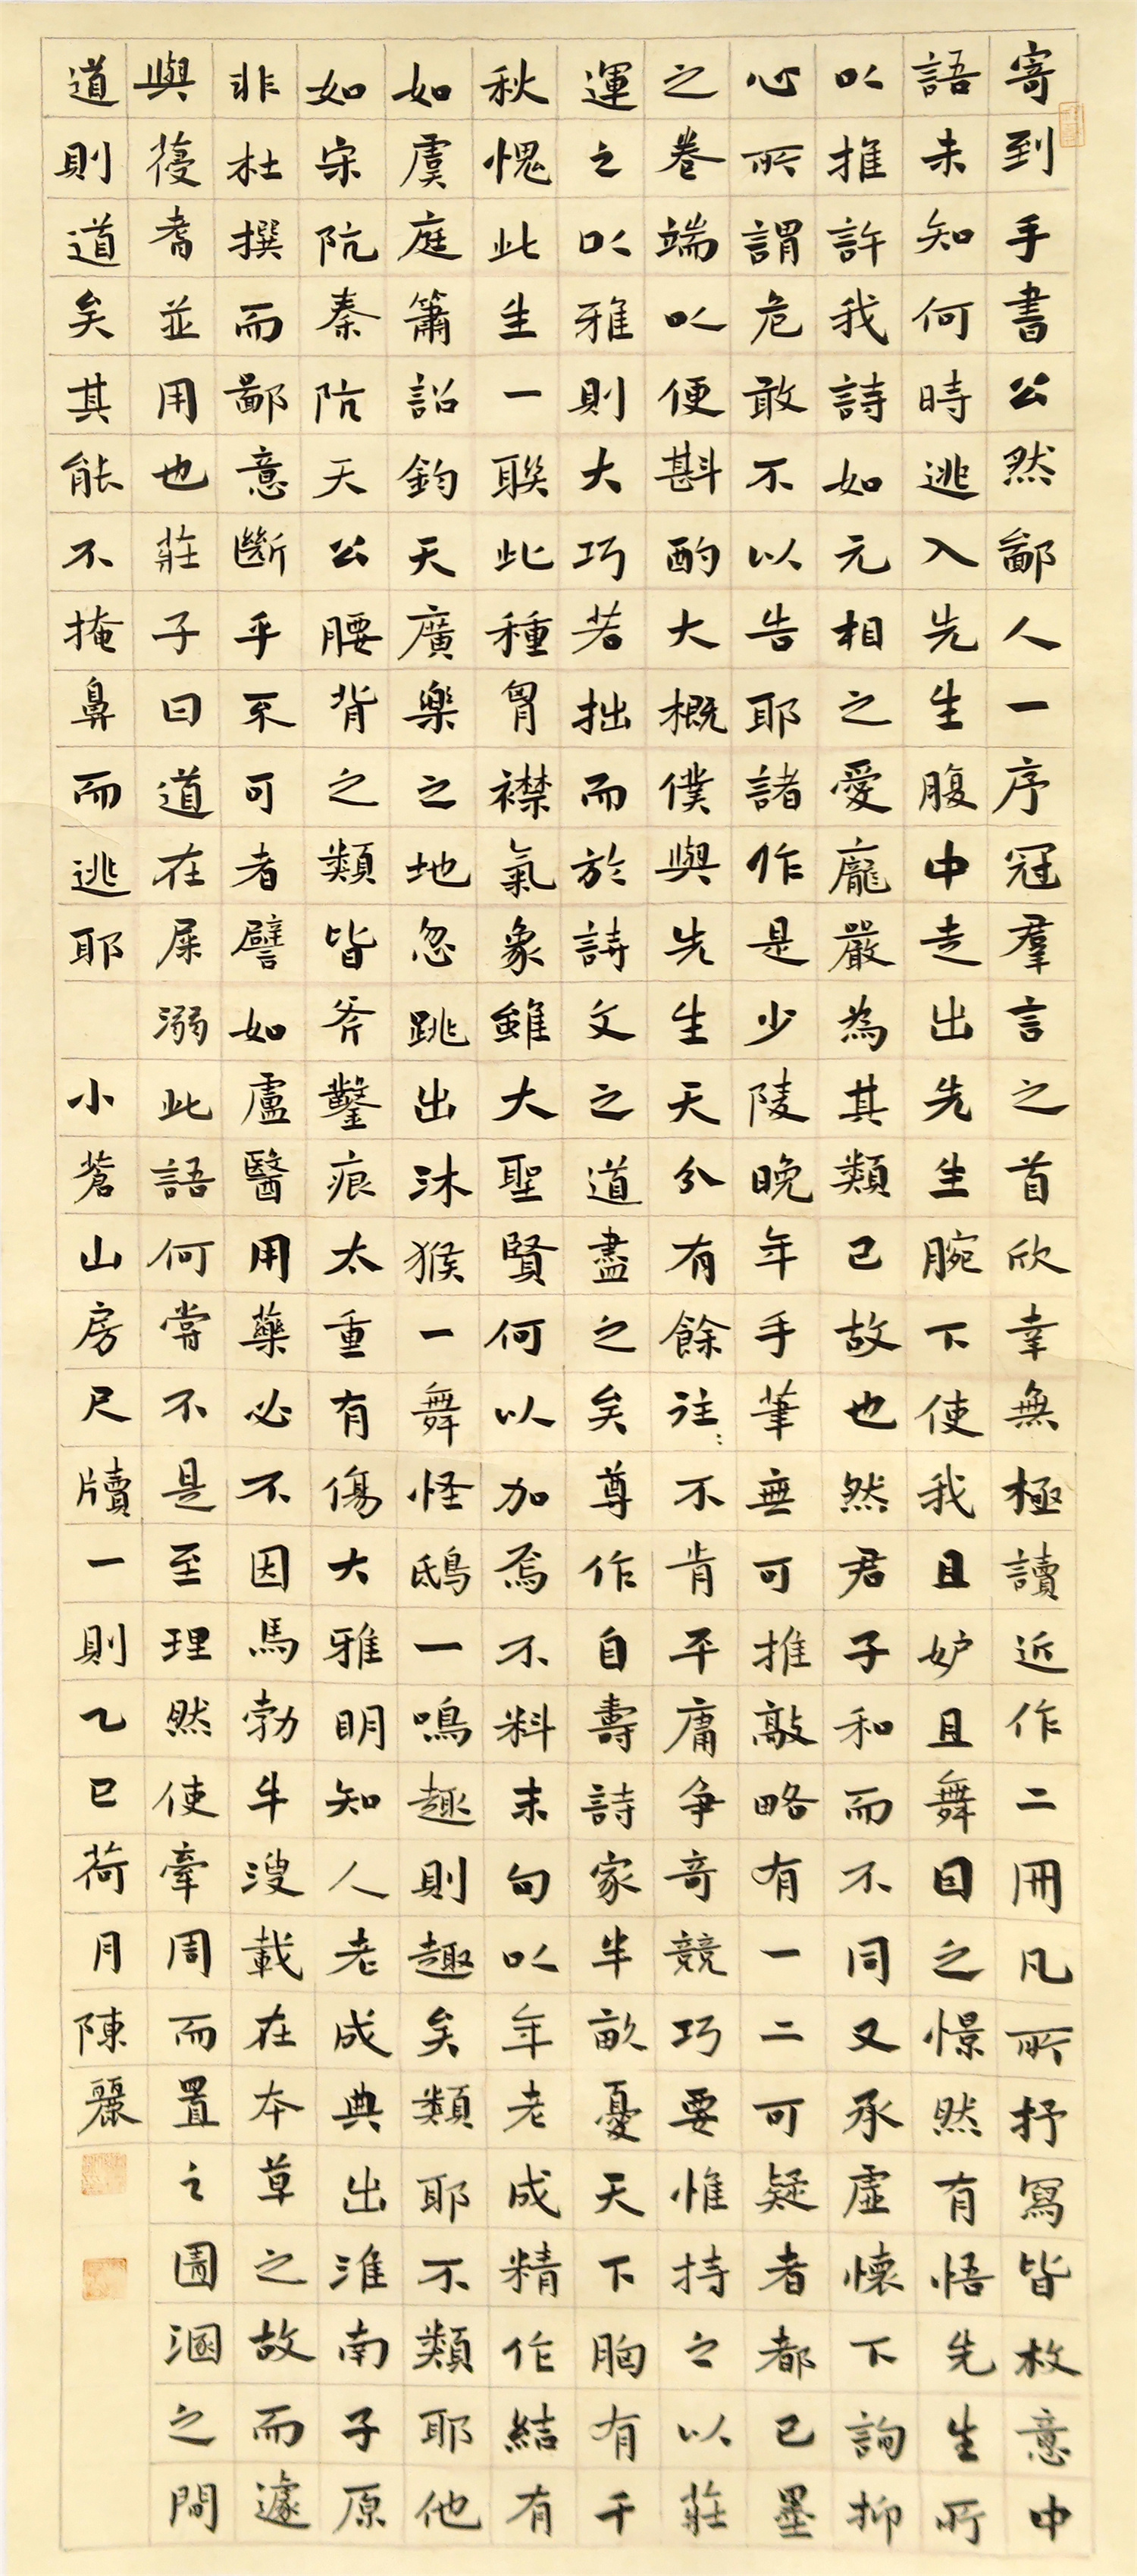 寄到手書公然鄙人一序冠羣言之首欣幸無極讀近作二冊凡所抒寫皆枚意中
語未知何時逃入先生腹中走出先生腕下使我且妒且舞目之憬然有悟先生所
以推許我詩如元相之愛龐嚴為其類己故也然君子和而不同又承虛懷下詢抑
心所謂危敢不以告耶諸作是少陵晚年手筆無可推敲略有一二可疑者都已墨
之卷端以便斟酌大概僕與先生天分有餘往：不肯平庸爭奇競巧要惟持之以莊
運之以雅則大巧若拙而於詩文之道盡之矣尊作自壽詩家半畝憂天下胸有千
秋愧此生一聯此種胷襟氣象雖大聖賢何以加焉不料末句以年老成精作結有
如虞庭簫韶鈞天廣樂之地忽跳出沐猴一舞怪鴟一鳴趣則趣矣類耶不類耶他
如宋阬秦阬天公腰背之類皆斧鑿痕太重有傷大雅明知人老成典出淮南子原
非杜撰而鄙意斷乎不可者譬如盧醫用藥必不因馬勃牛溲載在本草之故而遽
與葠耆並用也莊子曰道在屎溺此語何嘗不是至理然使牽周而置之圊溷之間
道則道矣其能不掩鼻而逃耶 小蒼山房尺牘一則乙巳荷月陳麗